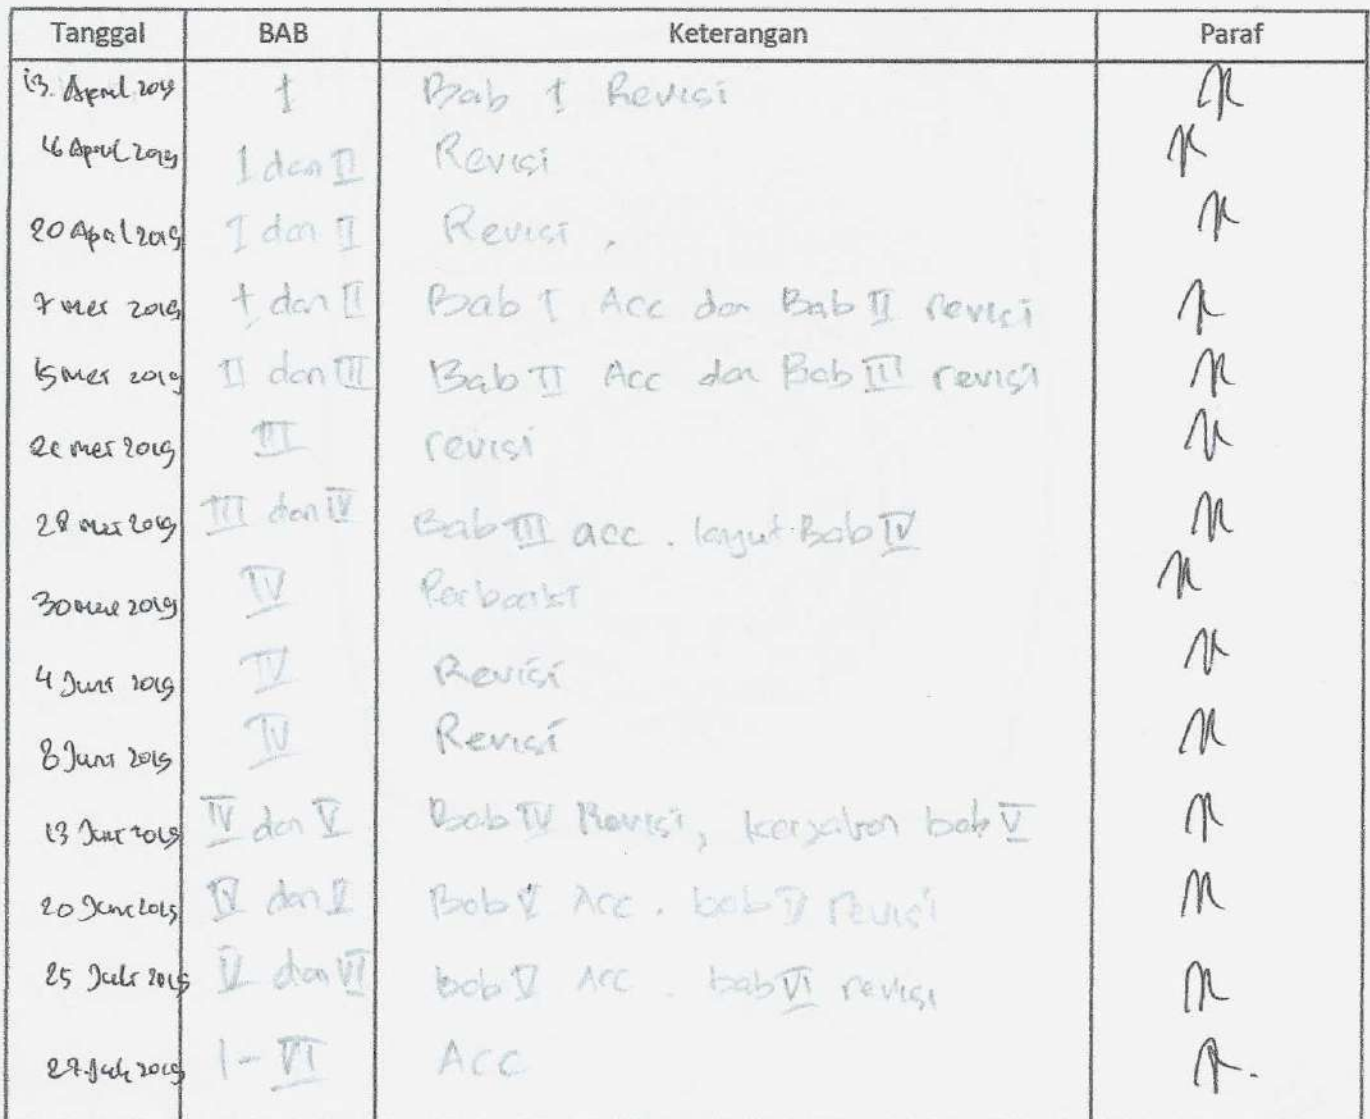 Tanggal BAB Keterangan Paraf
13 April 2019 1 Bab 1 Revisi
16 April 2019 I dan II Revisi
20 April 2019 I dan II Revisi.
7 mei 2019 I dan II Bab I Acc dan Bab II revisi
15 mei 2019 II dan III Bab II Acc dan Bab III revisi
mei 2019 III revisi
28 mei 2019 III dan IV Bab III acc. lanjut Bab IV
30 mei 2019 IV Perbaiki
4 Juni 2019 IV Revisi
8 Juni 2019 IV Revisi
13 Juni 2019 IV dan V Bab IV Revisi, kerjakan bab V
20 Juni 2019 IV dan V Bab Acc. bab revisi
25 Juli 2019 V dan VI bab V Acc. bab VI revisi
27 Juli 2019 1 - VI Acc